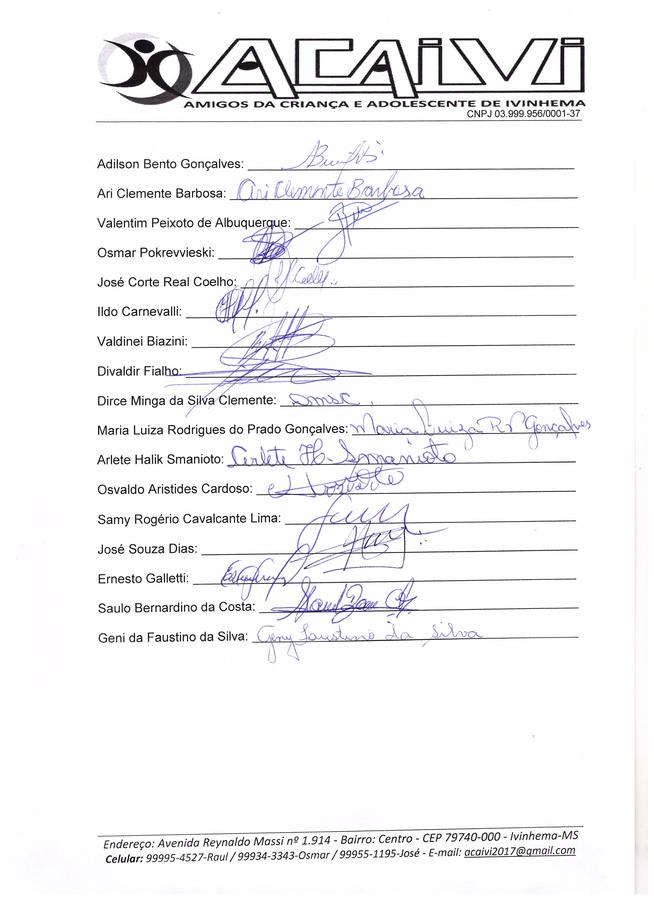 ACAiVi
AMIGOS DA CRIANÇA E ADOLESCENTE DE IVINHEMA
CNPJ 03.999.956/0001-37
Adilson Bento Gonçalves:
Ari Clemente Barbosa: Ari Clemente Barbosa
Valentim Peixoto de Albuquerque:
Osmar Pokrevvieski:
José Corte Real Coelho:
Ildo Carnevalli:
Valdinei Biazini:
Divaldir Fialho:
Dirce Minga da Silva Clemente: DMSC.
Maria Luiza Rodrigues do Prado Gonçalves: Maria Luiza R. Gonçalves
Arlete Halik Smanioto: Arlete H. Smanioto
Osvaldo Aristides Cardoso:
Samy Rogério Cavalcante Lima:
José Souza Dias:
Ernesto Galletti:
Saulo Bernardino da Costa:
Geni da Faustino da Silva: Geny Faustino da Silva
Endereço: Avenida Reynaldo Massi nº 1.914 - Bairro: Centro - CEP 79740-000 - Ivinhema-MS
Celular: 99995-4527-Raul / 99934-3343-Osmar / 99955-1195-José - E-mail: acaivi2017@gmail.com